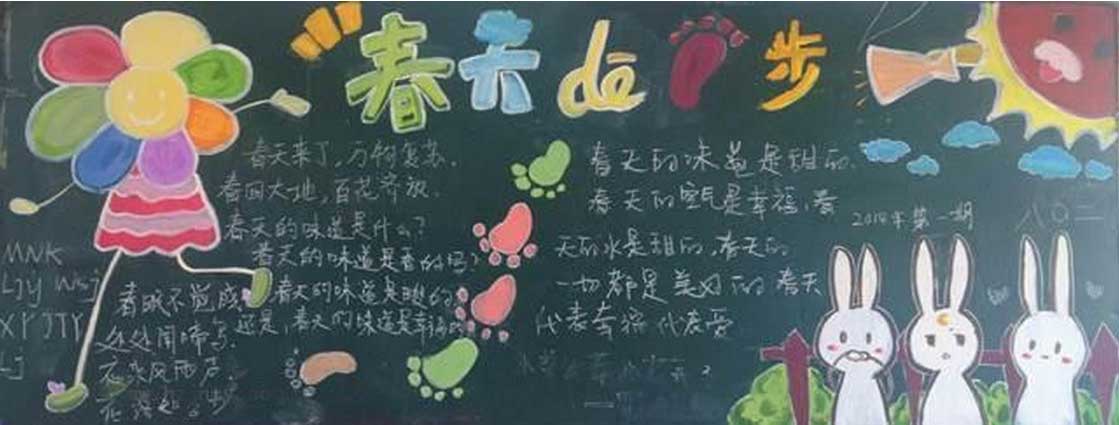 春天de脚步
春天来了，万物复苏，
春回大地，百花齐放。
春天的味道是什么？
春天的味道是香的吗？
春天的味道是甜的
还是，春天的味道是幸福的
春眠不觉
处处闻啼鸟。
花落处
春天的味道是甜的
春天的空气是幸福，春
天的水是甜的，春天的
一切都是美好的春天
代表幸福代表爱
第一期
八〇二
MNK
Ljy Wsj
XYJTY
LJ